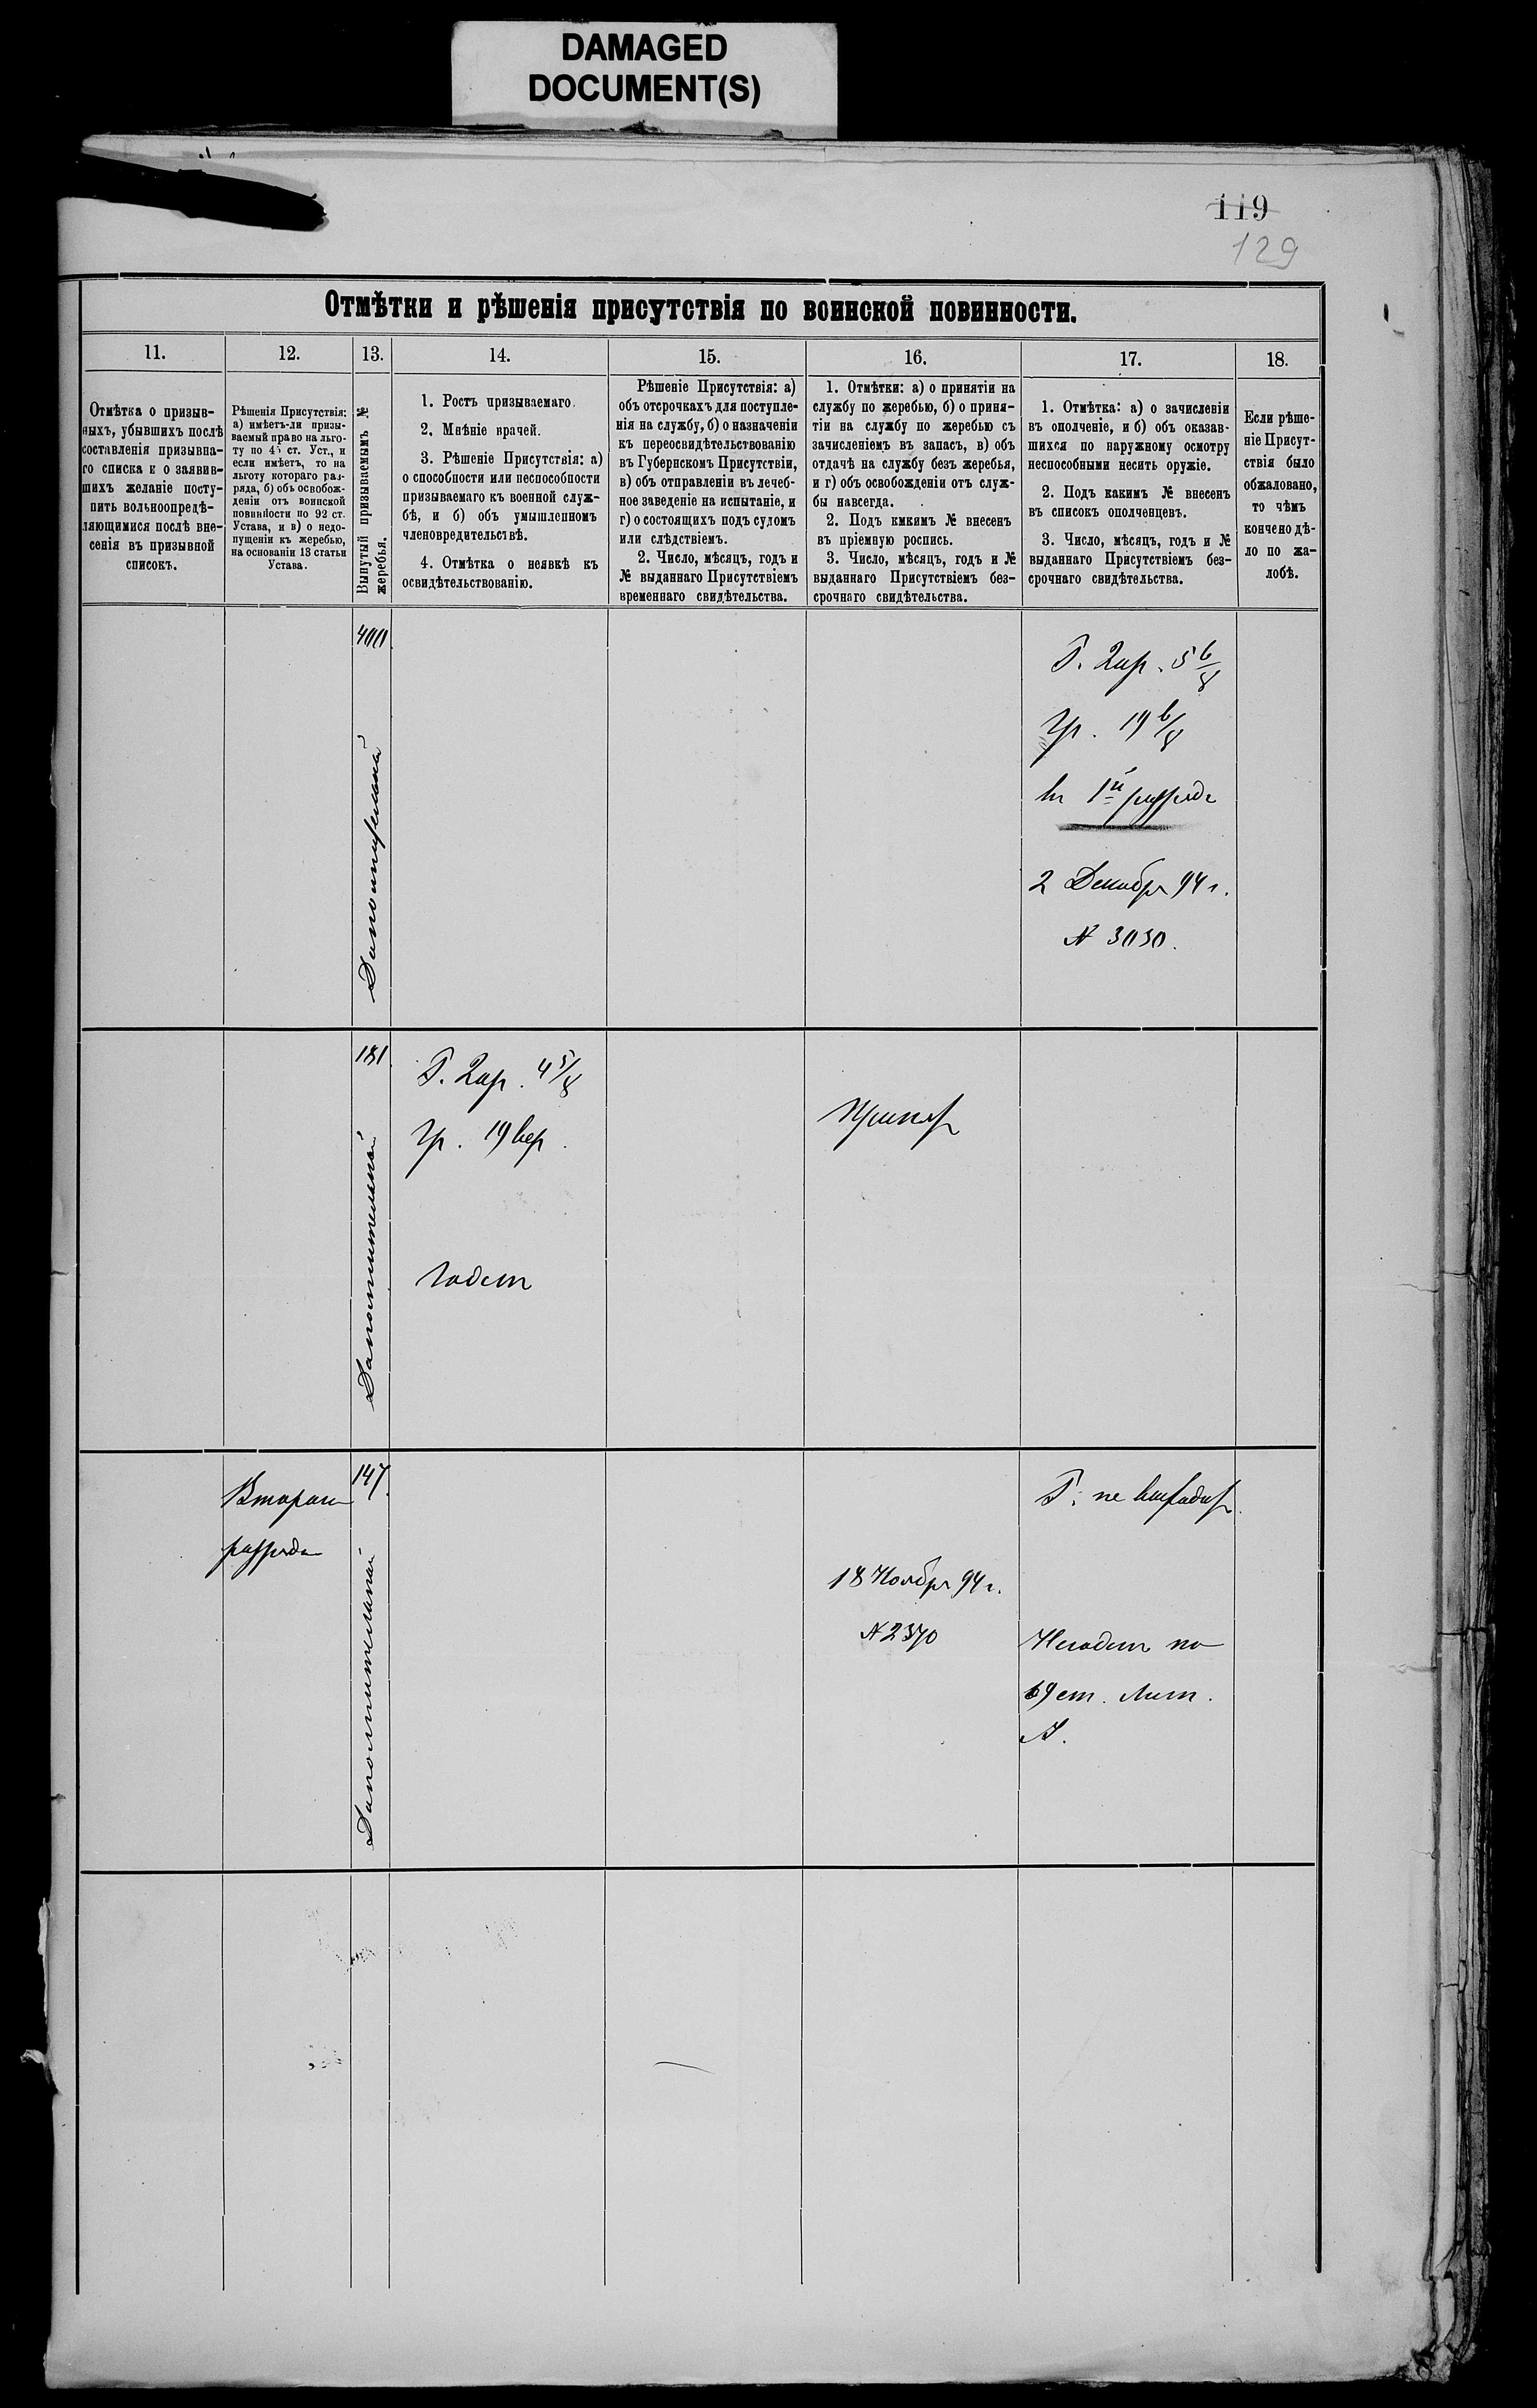 DAMAGED
DOCUMENT(S)
119
129
Отмѣтки и рѣшенія присутствія по воинской повинности.
11.
Отмѣтка о призыв-
ныхъ, убывшихъ послѣ
составленія призывна-
го списка и о заявив-
шихъ желаніе посту-
пить вольноопредѣ-
ляющимися послѣ вне-
сенія въ призывной
списокъ.
12.
Рѣшенія Присутствія:
а) имѣетъ-ли призы-
ваемый право на льго-
ту по 45 ст. Уст., и
если имѣетъ, то на
льготу котораго раз-
ряда, б) объ освобож-
деніи отъ воинской
повинности по 92 ст.
Устава, и в) о недо-
пущеніи къ жеребью,
на основаніи 13 статьи
Устава.
13.
Вынутый призываемымъ №
жеребья.
14.
1. Ростъ призываемаго.
2. Мнѣніе врачей.
3. Рѣшеніе Присутствія: а)
о способности или неспособности
призываемаго къ военной служ-
бѣ, и б) объ умышленномъ
членовредительствѣ.
4. Отмѣтка о неявкѣ къ
освидѣтельствованію.
15.
Рѣшеніе Присутствія: а)
объ отсрочкахъ для поступле-
нія на службу, б) о назначеніи
къ переосвидѣтельствованію
въ Губернскомъ Присутствіи,
в) объ отправленіи въ лечеб-
ное заведеніе на испытаніе, и
г) о состоящихъ подъ судомъ
или слѣдствіемъ.
2. Число, мѣсяцъ, годъ и
№ выданнаго Присутствіемъ
временнаго свидѣтельства.
16.
1. Отмѣтки: а) о принятіи на
службу по жеребью, б) о приня-
тіи на службу по жеребью съ
зачисленіемъ въ запасъ, в) объ
отдачѣ на службу безъ жеребья,
и г) объ освобожденіи отъ служ-
бы навсегда.
2. Подъ кмкимъ № внесенъ
въ пріемную роспись.
3. Число, мѣсяцъ, годъ и №
выданнаго Присутствіемъ без-
срочнаго свидѣтельства.
17.
1. Отмѣтка: а) о зачисленіи
въ ополченіе, и б) объ оказав-
шихся по наружному осмотру
неспособными несить оружіе.
2. Подъ какимъ № внесенъ
въ списокъ ополченцевъ.
3. Число, мѣсяцъ, годъ и №
выданнаго Присутствіемъ без-
срочнаго свидѣтельства.
18.
Если рѣше-
ніе Присут-
ствія было
обжаловано,
то чѣмъ
кончено дѣ-
ло по жа-
лобѣ.
400
Дополнительный
Р. 2 ар. 5 6/8
Гр. 19 6/8
въ 1й разрядъ
2 Декабря 94 г.
N 3030.
181
Дополнительный
Р. 2 ар. 4 5/8
Гр. 19 вер.
Годенъ
Принятъ
Втораго
разряда
147
Дополнительный
18 Ноября 94 г.
N 2370
Р. не выходитъ
Негоденъ по
69 ст. Лит.
А.